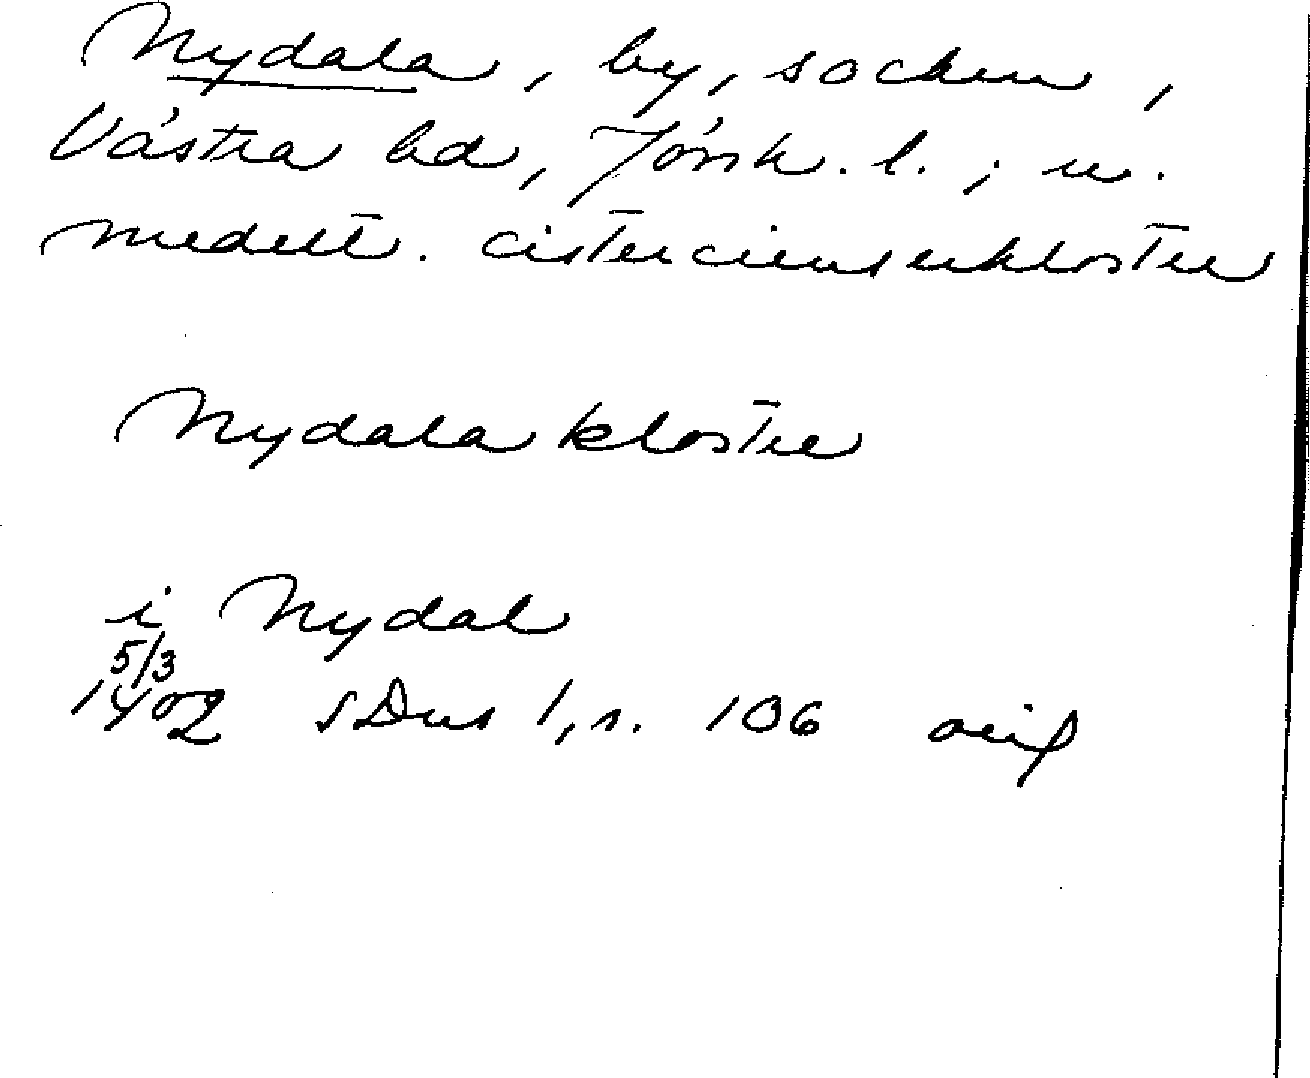 Nydala, by, socken,
Västra hd, Jönk. l.; u.
medelt. cistercienserkloster
Nydala kloster
i Nydal
5/3
1402 SDns 1, s. 106 or